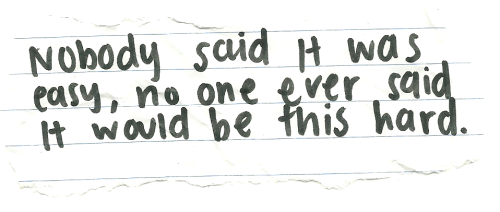 Nobody said it was
easy, no one ever said
it would be this hard.